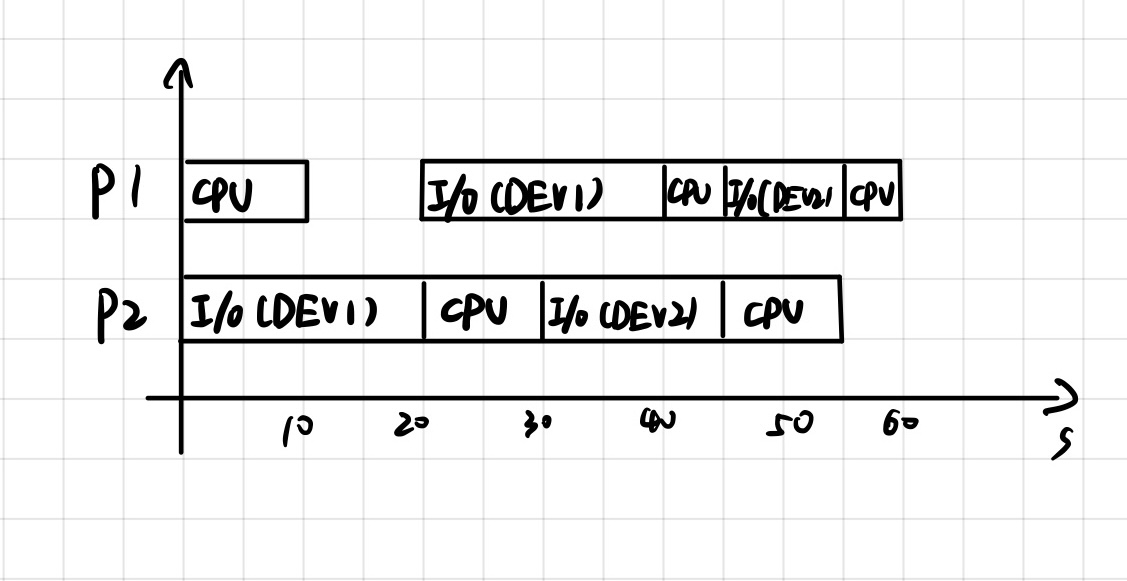 P1 CPU I/O (DEV1) CPU I/O(DEV2) CPU
P2 I/O (DEV1) CPU I/O (DEV2) CPU
10 20 30 40 50 60
s